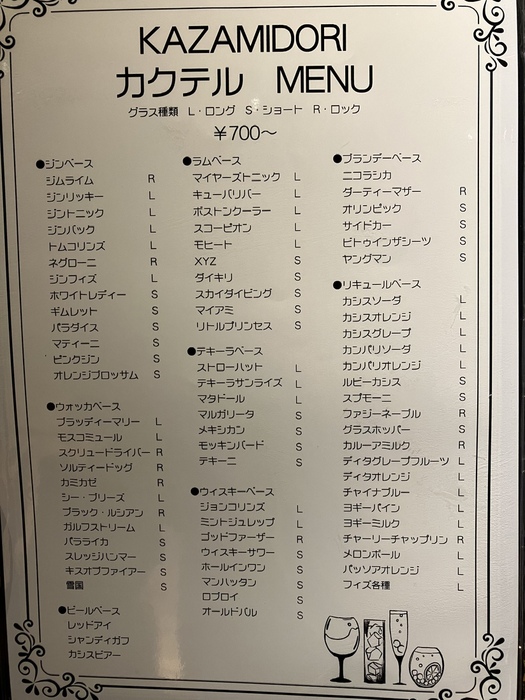 KAZAMIDORI
カクテル MENU
グラス種類 L・ロング S・ショート R・ロック
¥700〜
●ジンベース
ジムライム R
ジンリッキー L
ジントニック L
ジンバック L
トムコリンズ L
ネグローニ R
ジンフィズ L
ホワイトレディー S
ギムレット S
パラダイス S
マティーニ S
ピンクジン S
オレンジブロッサム S
●ウォッカベース
ブラッディーマリー L
モスコミュール L
スクリュードライバー R
ソルティードッグ R
カミカゼ R
シー・ブリーズ L
ブラック・ルシアン R
ガルフストリーム L
バラライカ S
スレッジハンマー S
キスオブファイアー S
雪国 S
●ビールベース
レッドアイ
シャンディガフ
カシスビアー
●ラムベース
マイヤーズトニック L
キューバリバー L
ボストンクーラー L
スコーピオン L
モヒート L
XYZ S
ダイキリ S
スカイダイビング S
マイアミ S
リトルプリンセス S
●テキーラベース
ストローハット L
テキーラサンライズ L
マタドール L
マルガリータ S
メキシカン S
モッキンバード S
テキーニ S
●ウィスキーベース
ジョンコリンズ L
ミントジュレップ L
ゴッドファーザー R
ウィスキーサワー S
ホールインワン S
マンハッタン S
ロブロイ S
オールドパル S
●ブランデーベース
ニコラシカ
ダーティーマザー R
オリンピック S
サイドカー S
ビトウィンザシーツ S
ヤングマン S
●リキュールベース
カシスソーダ L
カシスオレンジ L
カシスグレープ L
カンパリソーダ L
カンパリオレンジ L
ルビーカシス S
スプモーニ S
ファジーネーブル R
グラスホッパー S
カルーアミルク R
ディタグレープフルーツ L
ディタオレンジ L
チャイナブルー L
ヨギーパイン L
ヨギーミルク L
チャーリーチャップリン R
メロンボール L
パッソアオレンジ L
フィズ各種 L